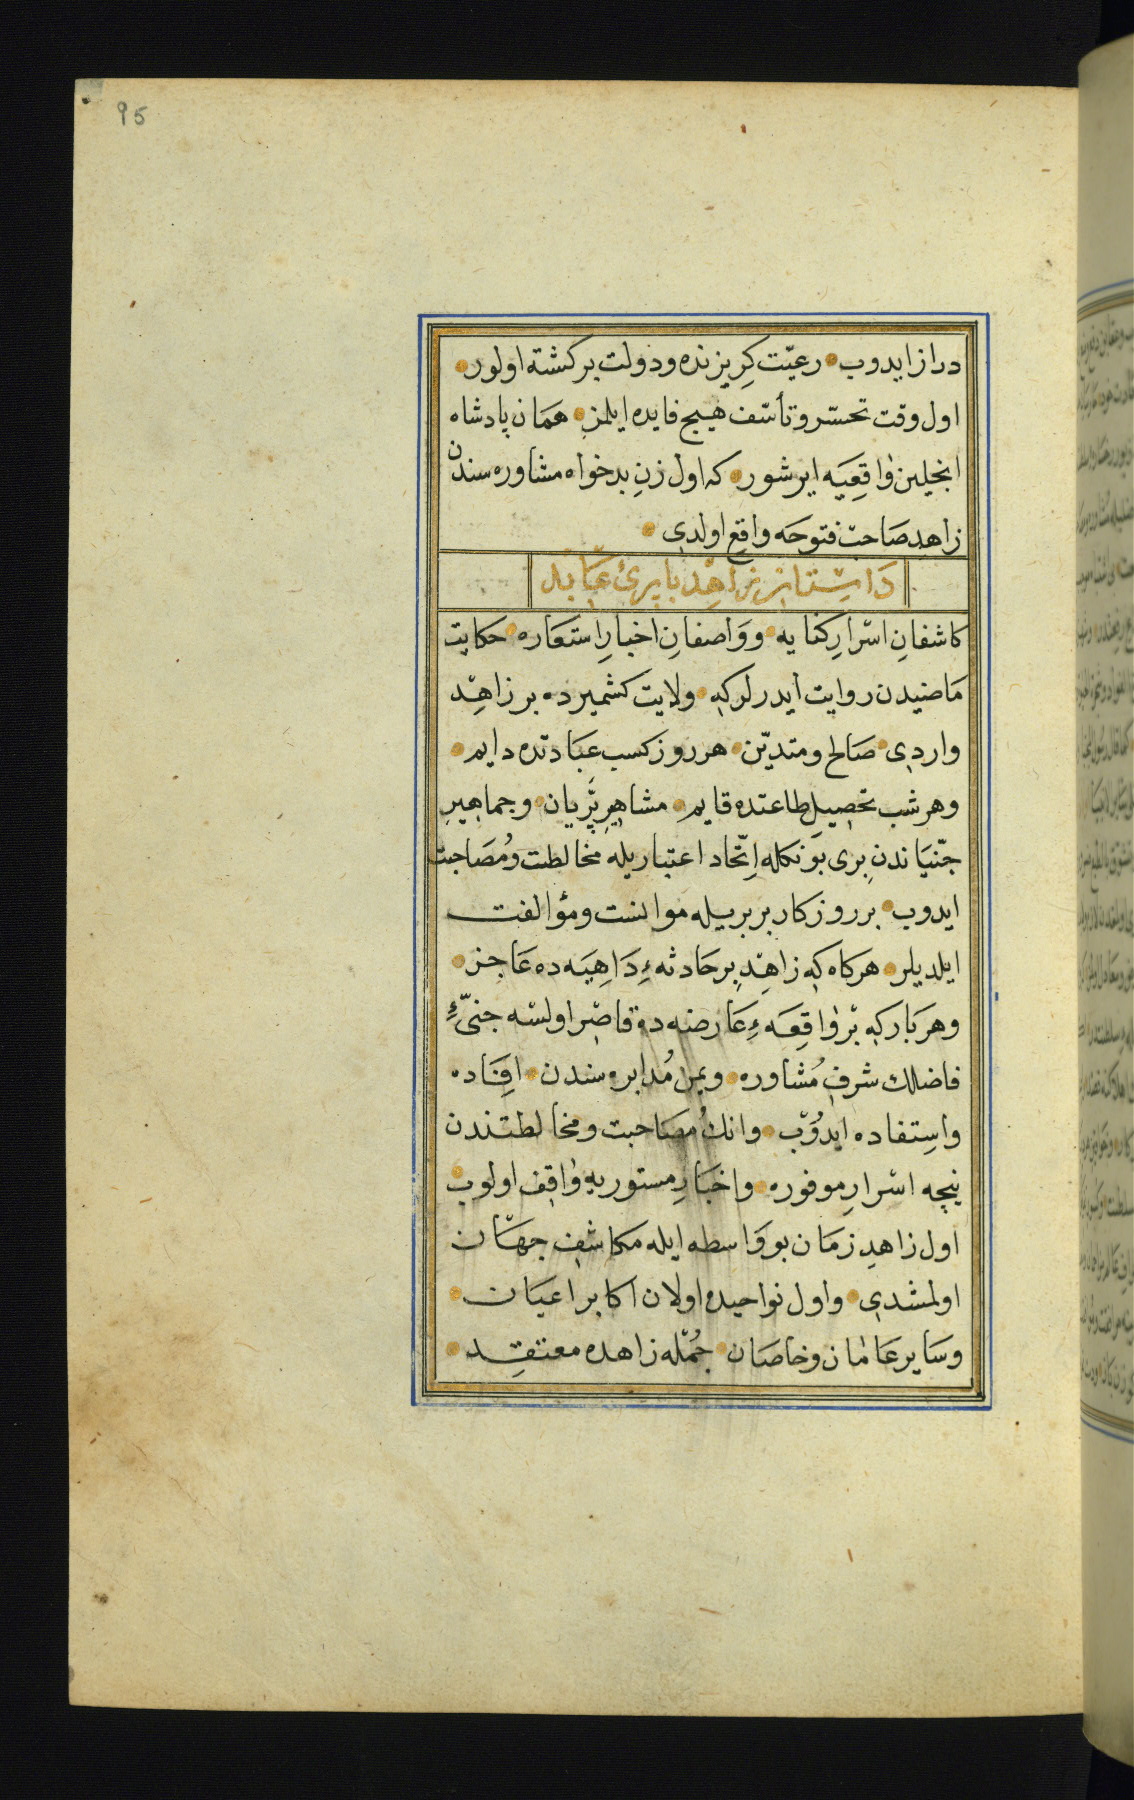 95
دراز ایدوب رعیّت کریزنده ودولت برکشته اولور
اول وقت تحسّر وتأسّف هیچ فایده ایلمز همان پادشاه
انجیلین واقعیه ایرشور که اول زنِ بدخواه مشاوره سندن
زاهد صاحب فتوحه واقع اولدی
داستان زاهد با پرئ عابد
کاشفانِ اسرارِ کنایه وواصفانِ اخبارِ استعاره حکایت
ماضیدن روایت ایدرلر که ولایت کشمیرده بر زاهد
واردی صالح ومتدیّن هر روز کسب عبادتده دایم
وهر شب تحصیلِ طاعتده قایم مشاهیرِ پریان وجماهیرِ
جنّیاندن بری بونکله اتّحاد اعتباریله مخالطت ومُصاحبت
ایدوب بر روزکار بربریله موانست ومؤالفت
ایلدیلر هرکاه که زاهد بر حادثهءِ داهیه ده عاجز
وهربار که بر واقعهءِ عارضه ده قاصر اولسه جنّیءِ
فاضلك شرفِ مُشاوره ویمن مُدابره سندن افاده
واستفاده ایدُوب وانك مُصاحبت ومخالطتندن
نیچه اسرارِ موفوره واخبارِ مستوریه واقف اولوب
اول زاهدِ زمان بو واسطه ایله مکاشفِ جهان
اولمشدی واول نواحیده اولان اکابر اعیان
وسایر عامان وخاصان جُمله زاهده معتقِد